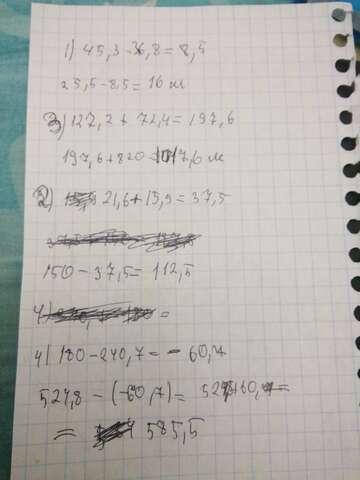 1) 45,3-36,8=8,5
25,5-8,5=16 м
3) 127,2+72,4=197,6
197,6+820=1017,6 м
2) 21,6+15,9=37,5
150-37,5=112,5
4) =
4) 180-240,7=-60,7
524,8-(-60,7)=
= 585,5